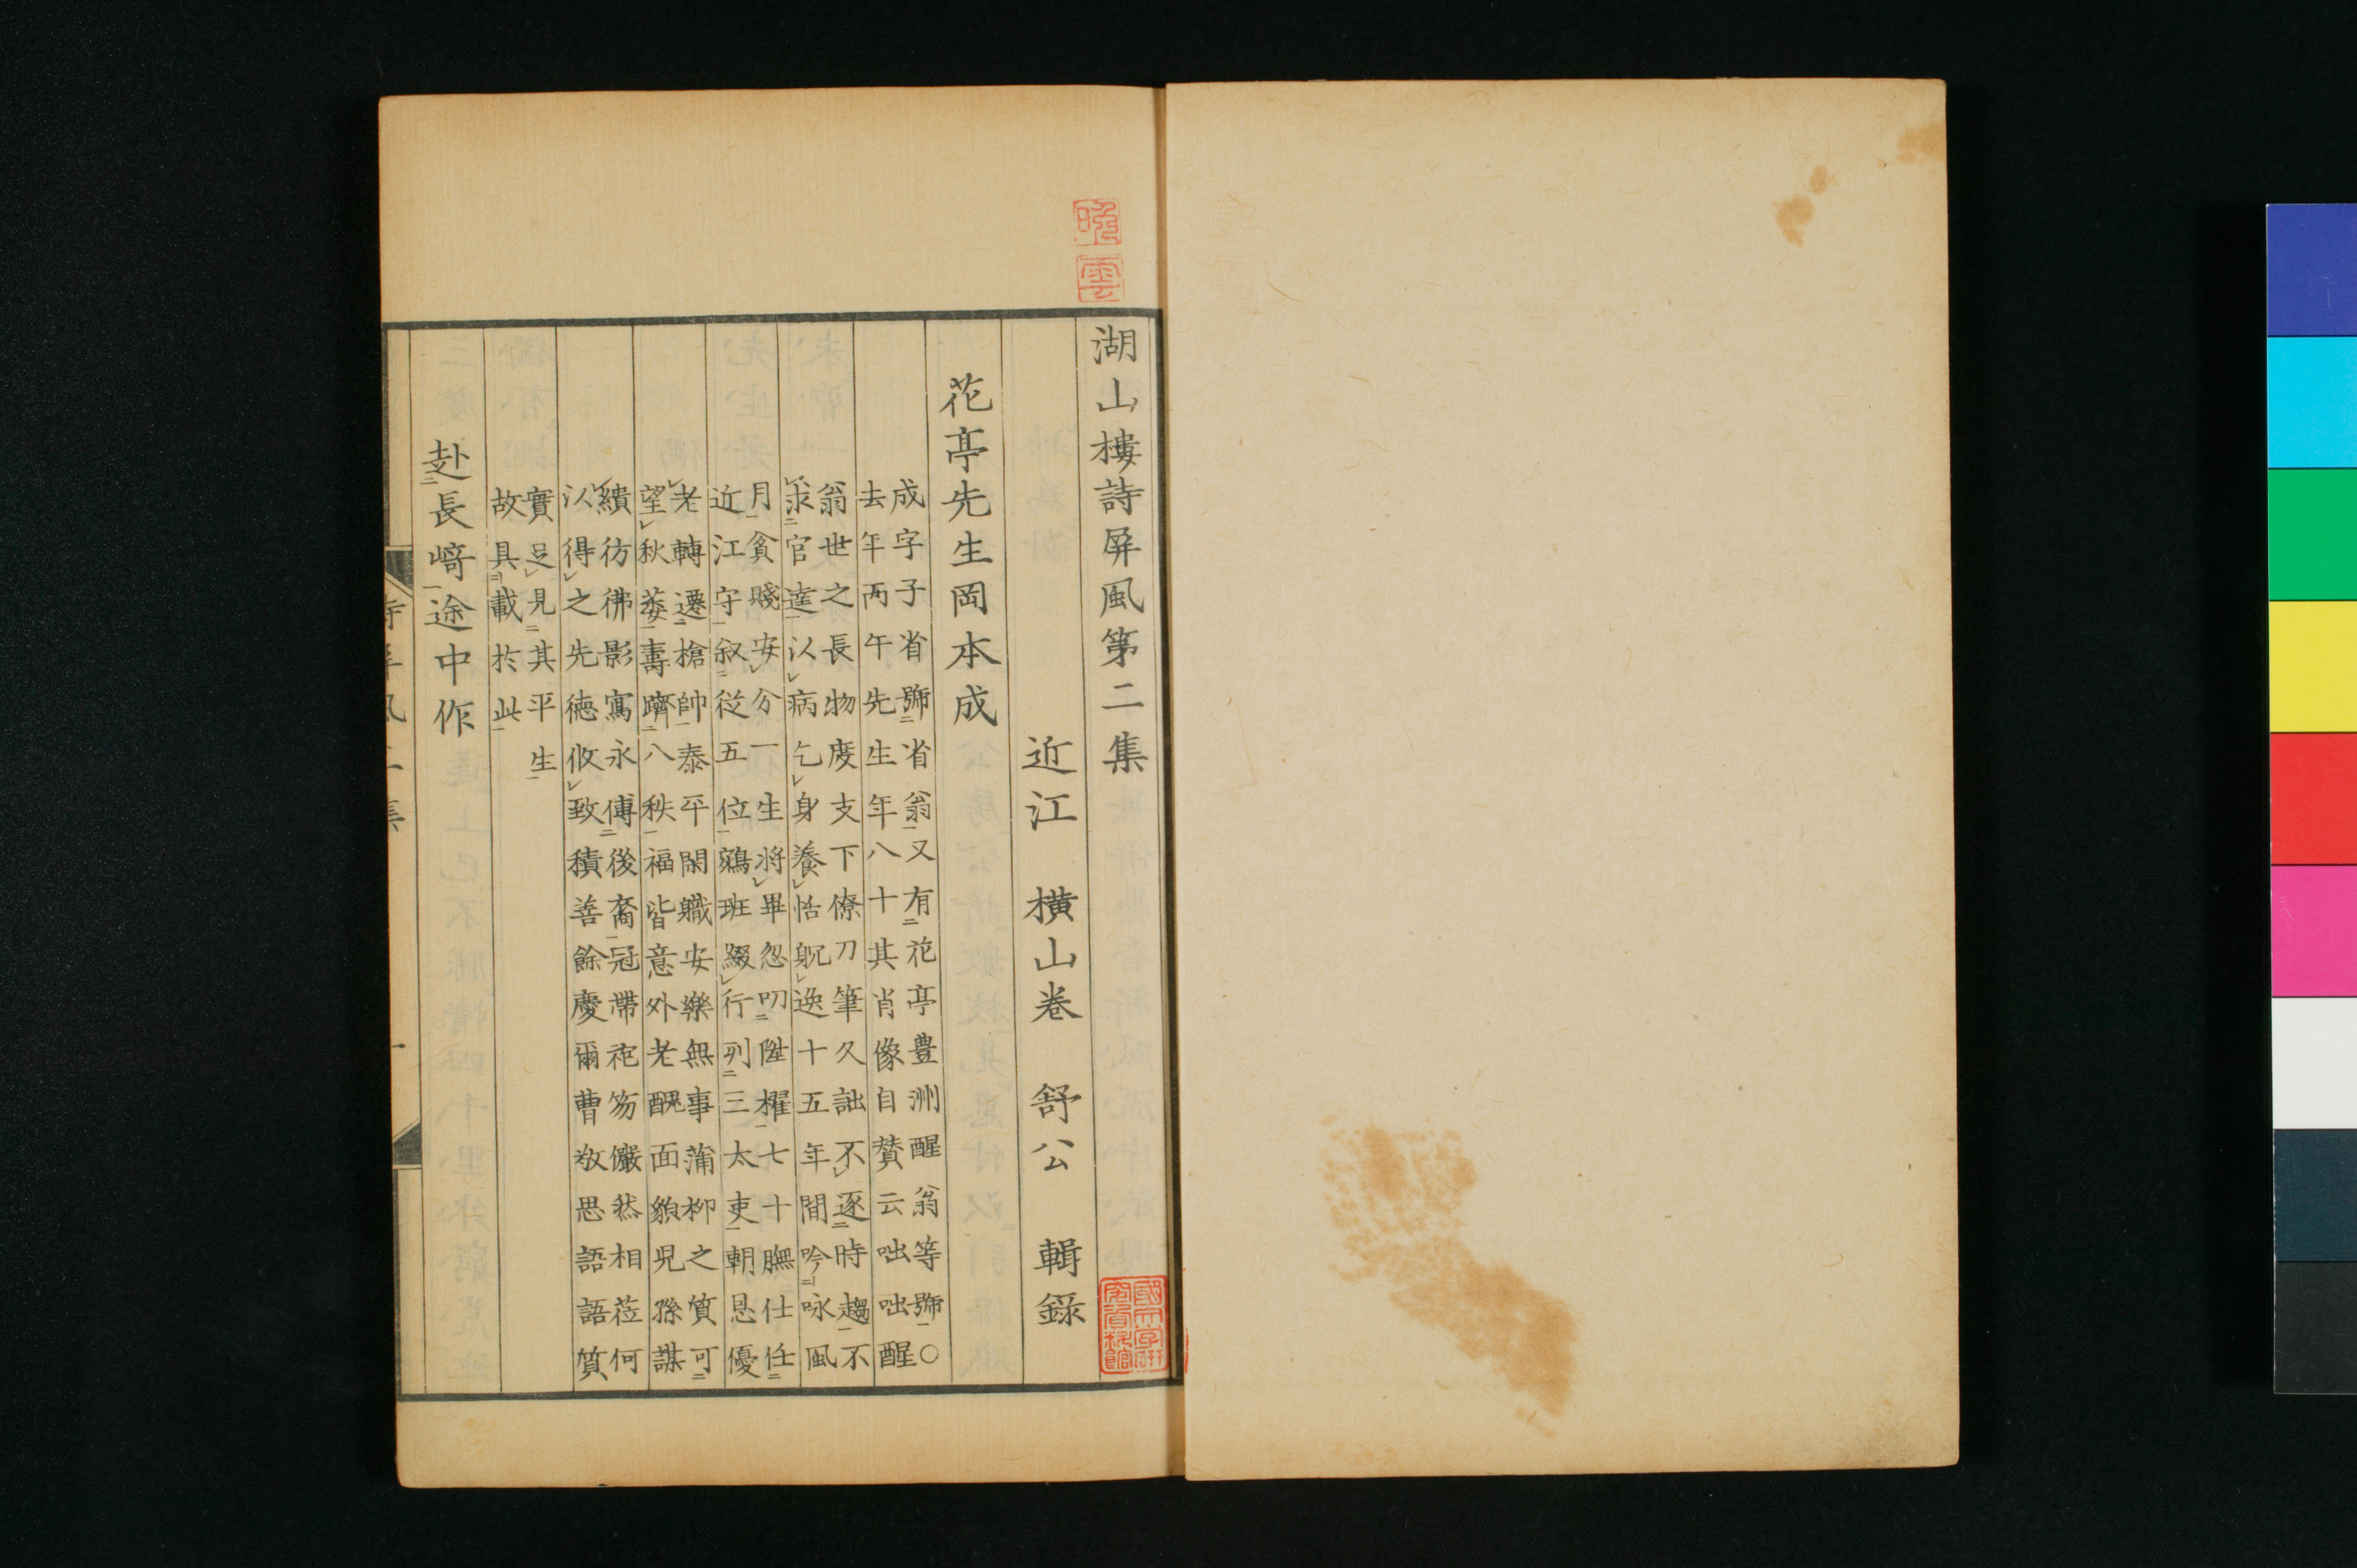 湖山樓詩屏風第二集
近江 橫山卷 舒公 輯錄
花亭先生岡本成
成字子省號省翁又有花亭豊洲醒翁等號○
去年丙午先生年八十其肖像自賛云咄咄醒
翁世之長物度支下僚刀筆久詘不逐時趨不
求官達以病乞身養恬躭逸十五年間吟咏風
月貧賤安分一生將畢忽叨陞櫂七十膴仕任
近江守叙從五位鵷班綴行列三太吏朝恩優
老轉遷槍帥泰平閑職安樂無事蒲柳之質可
望秋蔞壽躋八秩福皆意外老醜面貌兒孫謀
繢彷彿影寫永傳後裔冠帶袍笏儼然相莅何
以得之先德攸致積善餘慶爾曹敬思語語質
實足見其平生
故具載於此
赴長﨑途中作
晚
雲